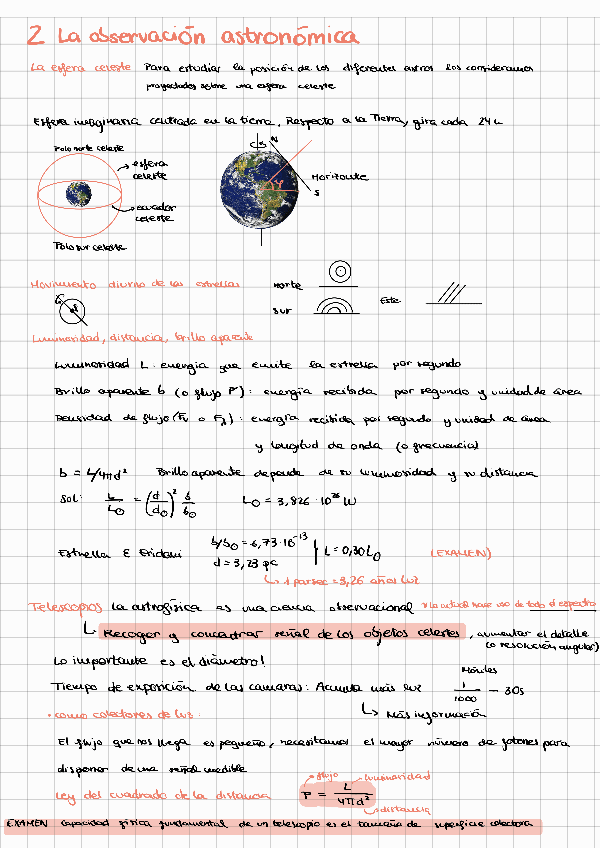 2 La observación astronómica
La esfera celeste Para estudiar la posición de los diferentes astros los consideramos
proyectados sobre una esfera celeste
Esfera imaginaria centrada en la tierra. Respecto a la Tierra, gira cada 24h
Polo norte celeste
esfera
celeste
ecuador
celeste
Polo sur celeste
N
Horizonte
S
Movimiento diurno de las estrellas
norte
sur
Este
Luminosidad, distancia, brillo aparente
Luminosidad L: energía que emite la estrella por segundo
Brillo aparente b (o flujo F): energía recibida por segundo y unidad de área
Densidad de flujo (Fν o Fλ): energía recibida por segundo y unidad de área
y longitud de onda (o frecuencia)
b = L/4πd² Brillo aparente depende de su luminosidad y su distancia
Sol: L/L⊙ = (d/d⊙)² b/b⊙ L⊙ = 3,826 · 10²⁶ W
Estrella ε Eridani b/b⊙ = 6,73·10⁻¹³ L = 0,30 L⊙ (EXAMEN)
d = 3,23 pc
1 parsec = 3,26 años luz
Telescopios La astrofísica es una ciencia observacional * la actual hace uso de todo el espectro
Recoger y concentrar señal de los objetos celestes, aumentar el detalle
(o resolución angular)
Lo importante es el diámetro!
Móviles
Tiempo de exposición de las camaras: Acumula más luz 1/1000 - 30s
Más información
· como colectores de luz:
El flujo que nos llega es pequeño, necesitamos el mayor número de fotones para
disponer de una señal medible
flujo luminosidad
Ley del cuadrado de la distancia F = L/4πd²
distancia
EXAMEN Capacidad física fundamental de un telescopio es el tamaño de superficie colectora